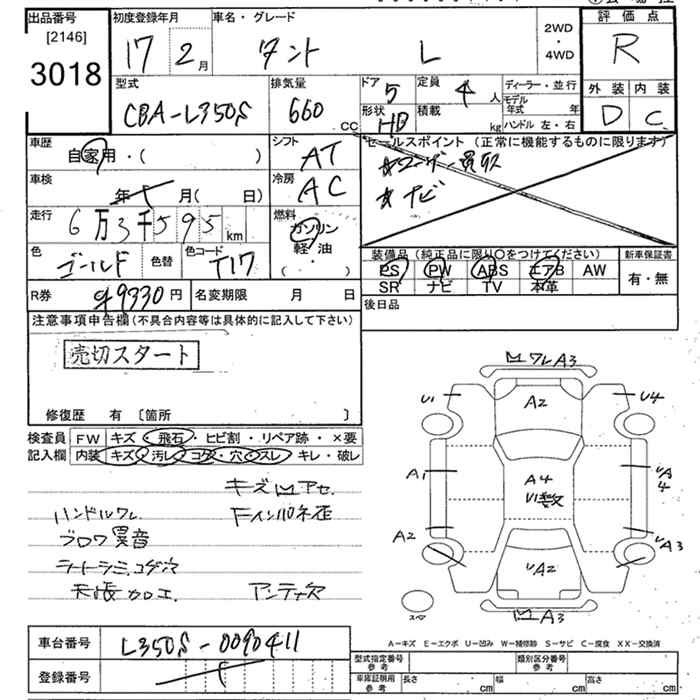 出品番号
[2146]
3018
初度登録年月
17 2月
車名・グレード
タント L
2WD
・
4WD
評価点
R
外装 内装
D C
型式
CBA-L350S
排気量
660 CC
ドア 5
形状 HB
定員 4人
積載 kg
ディーラー・並行
モデル年式 年
ハンドル 左・右
車歴
自家用・( )
シフト
AT
セールスポイント (正常に機能するものに限ります)
★ユーザー買取
★ナビ
車検
年 月( 日)
冷房
AC
走行
6万3千595km
燃料
ガソリン
軽油
( ・ )
色
ゴールド
色替
色コード
T17
装備品(純正品に限り○をつけてください)
新車保証書
PS PW ABS エアB AW
SR ナビ TV 本革
有・無
R券 9330円
名変期限 月 日
後日品
注意事項申告欄(不具合内容等は具体的に記入して下さい)
売切スタート
修復歴 有 〔箇所 〕
検査員 FW キズ・飛石・ヒビ割・リペア跡・×要
記入欄 内装 キズ・汚レ・コゲ・穴・スレ・キレ・破レ
キズ凹アセ
ハンドルワレ
Fインパネ歪
ブロワ異音
シートシミ、コゲ穴
天張加工
アンテナ欠
凹ワレA3
U1
A2
U4
A1
A4
A4
A2
A2
A3
スペア
凹A3
A-キズ E-エクボ U-凹み W-補修跡 S-サビ C-腐食 XX-交換済
車台番号 L350S-0090411
登録番号
型式指定番号
参考
類別区分番号
参考
車庫証明用
参考
長さ cm 幅 cm 高さ cm